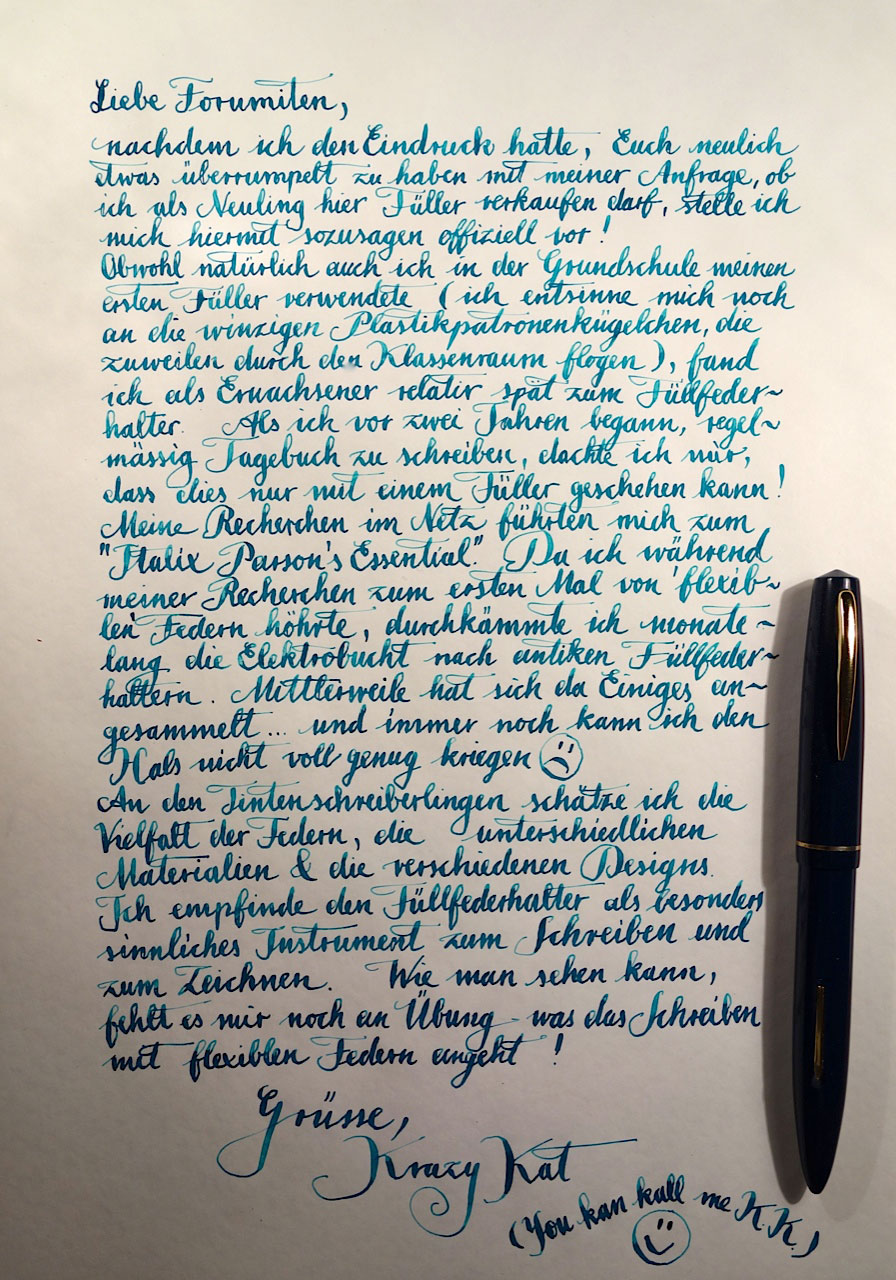 Liebe Forumiten,
nachdem ich den Eindruck hatte, Euch neulich
etwas überrumpelt zu haben mit meiner Anfrage, ob
ich als Neuling hier Füller verkaufen darf, stelle ich
mich hiermit sozusagen offiziell vor!
Obwohl natürlich auch ich in der Grundschule meinen
ersten Füller verwendete (ich entsinne mich noch
an die winzigen Plastikpatronenkügelchen, die
zuweilen durch den Klassenraum flogen), fand
ich als Erwachsener relativ spät zum Füllfeder~
halter. Als ich vor zwei Jahren begann, regel~
mässig Tagebuch zu schreiben, dachte ich mir,
dass dies nur mit einem Füller geschehen kann!
Meine Recherchen im Netz führten mich zum
"Italix Parson's Essential". Da ich während
meiner Recherchen zum ersten Mal von 'flexib~
len' Federn höhrte, durchkämmte ich monate~
lang die Elektrobucht nach antiken Füllfeder~
haltern. Mittlerweile hat sich da Einiges an~
gesammelt... und immer noch kann ich den
Hals nicht voll genug kriegen ☹
An den Tintenschreiberlingen schätze ich die
Vielfalt der Federn, die unterschiedlichen
Materialien & die verschiedenen Designs.
Ich empfinde den Füllfederhalter als besonders
sinnliches Instrument zum Schreiben und
zum Zeichnen. Wie man sehen kann,
fehlt es mir noch an Übung - was das Schreiben
mit flexiblen Federn angeht!
Grüsse,
Krazy Kat
(You kan kall me K.K.)
☺